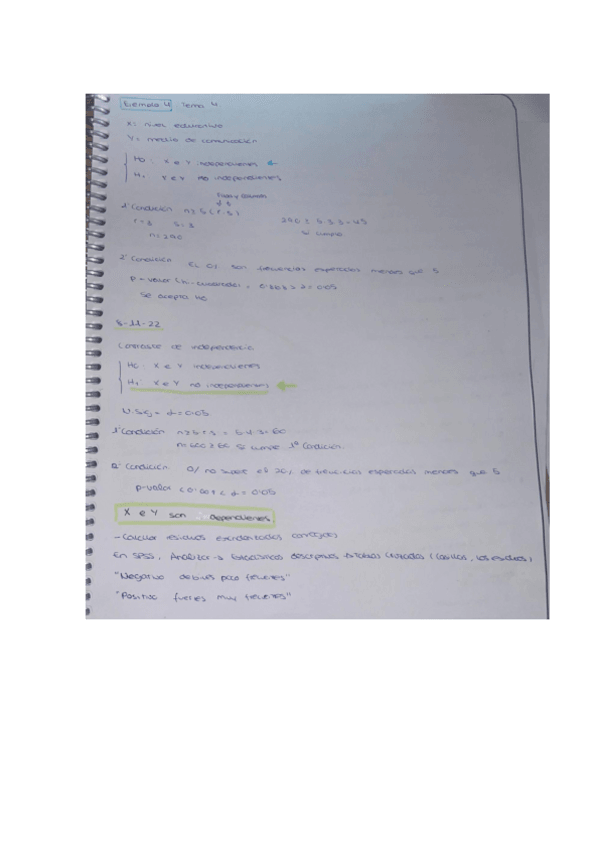 Ejemplo 4 Tema 4
X: Nivel educativo
Y: medio de comunicación
H0: X e Y independientes ←
H1: X e Y no independientes
Filas y columnas
1ª Condición n ≥ 5 (r·s)
r=3 s=3 240 ≥ 5·3·3=45
n=240 Si cumple
2ª Condición El 0% son frecuencias esperadas menores que 5
p-valor = 0'863 > α = 0'05
Se acepta H0
8-11-22
Contraste de independencia
H0: X e Y independientes
H1: X e Y no independientes ←
N.Sig = α = 0'05
1ª Condición n≥5·r·s = 5·4·3=60
n=600≥60 Si cumple 1ª Condición
2ª Condición. no supera el 20% de frecuencias esperadas menores que 5
p-valor <0'001 < α = 0'05
X e Y son dependientes
- Calcular residuos estandarizados corregidos
En SPSS, Analizar → Estadísticos descriptivos → Tablas cruzadas (Casillas, residuos)
"Negativo débiles poco"
"Positivo fuertes muy"